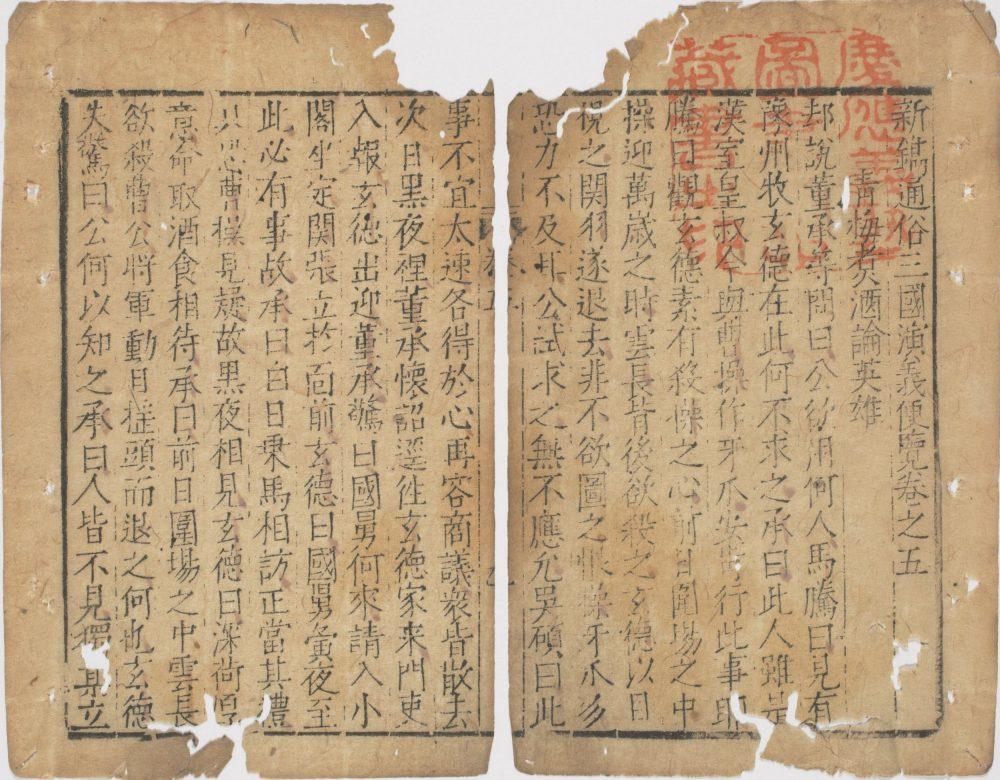 新鐫通俗三國演義便覽卷之五
青梅煑酒論英雄
却說董承等問曰公欲用何人馬騰曰見有
豫州牧玄德在此何不求之承曰此人雖是
漢室皇叔今與曹操作牙爪安肯行此事耶
騰曰觀玄德素有殺操之心前日圍場之中
操迎萬歲之時雲長背後欲殺之玄德以目
視之関羽遂退去非不欲圖之恨操牙爪多
恐力不及耳公試求之無不應允吳碩曰此
事不宜太速各得於心再容商議衆皆散去
次日黑夜裡董承懷詔逕往玄德家来門吏
入報玄德出迎董承驚曰國舅何來請入小
閣坐定関張立於面前玄德曰國舅夤夜至
此必有事故承曰白日乗馬相訪正當其禮
只恐曹操見疑故黒夜相見玄德曰深荷厚
意命取酒食相待承曰前日圍場之中雲長
欲殺曹公將軍動目揺頭而退之何也玄德
失驚曰公何以知之承曰人皆不見獨某立
卷五
五
慶應義塾
圖書
藏書